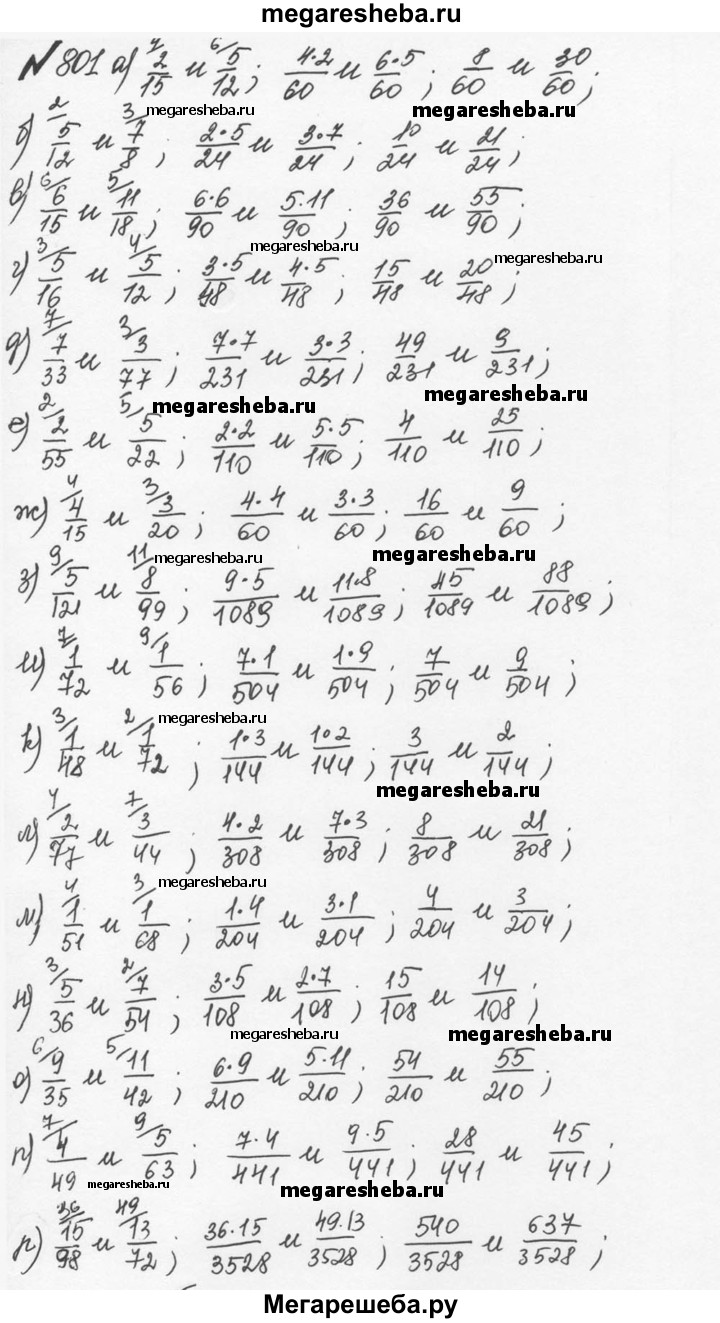 megaresheba.ru
№ 801 а) 4/ 2/15 и 6/ 5/12; 4•2/60 и 6•5/60; 8/60 и 30/60;
megaresheba.ru megaresheba.ru
б) 2/ 5/12 и 3/ 7/8; 2•5/24 и 3•7/24; 10/24 и 21/24;
в) 6/ 6/15 и 5/ 11/18; 6•6/90 и 5•11/90; 36/90 и 55/90;
megaresheba.ru megaresheba.ru
г) 3/ 5/16 и 4/ 5/12; 3•5/48 и 4•5/48; 15/48 и 20/48;
д) 7/ 7/33 и 3/ 3/77; 7•7/231 и 3•3/231; 49/231 и 9/231;
megaresheba.ru megaresheba.ru
е) 2/ 2/55 и 5/ 5/22; 2•2/110 и 5•5/110; 4/110 и 25/110;
ж) 4/ 4/15 и 3/ 3/20; 4•4/60 и 3•3/60; 16/60 и 9/60;
megaresheba.ru megaresheba.ru
з) 9/ 5/121 и 11/ 8/99; 9•5/1089 и 11•8/1089; 45/1089 и 88/1089;
и) 7/ 1/72 и 9/ 1/56; 7•1/504 и 1•9/504; 7/504 и 9/504;
megaresheba.ru
к) 3/ 1/48 и 2/ 1/72; 1•3/144 и 1•2/144; 3/144 и 2/144;
megaresheba.ru
л) 4/ 2/77 и 7/ 3/44; 4•2/308 и 7•3/308; 8/308 и 21/308;
megaresheba.ru
м) 4/ 1/51 и 3/ 1/68; 1•4/204 и 3•1/204; 4/204 и 3/204;
н) 3/ 5/36 и 2/ 7/54; 3•5/108 и 2•7/108; 15/108 и 14/108;
megaresheba.ru megaresheba.ru
о) 6/ 9/35 и 5/ 11/42; 6•9/210 и 5•11/210; 54/210 и 55/210;
п) 7/ 4/49 и 9/ 5/63; 7•4/441 и 9•5/441; 28/441 и 45/441;
megaresheba.ru megaresheba.ru
р) 36/ 15/98 и 49/ 13/72; 36•15/3528 и 49•13/3528; 540/3528 и 637/3528;
Мегарешеба.ру